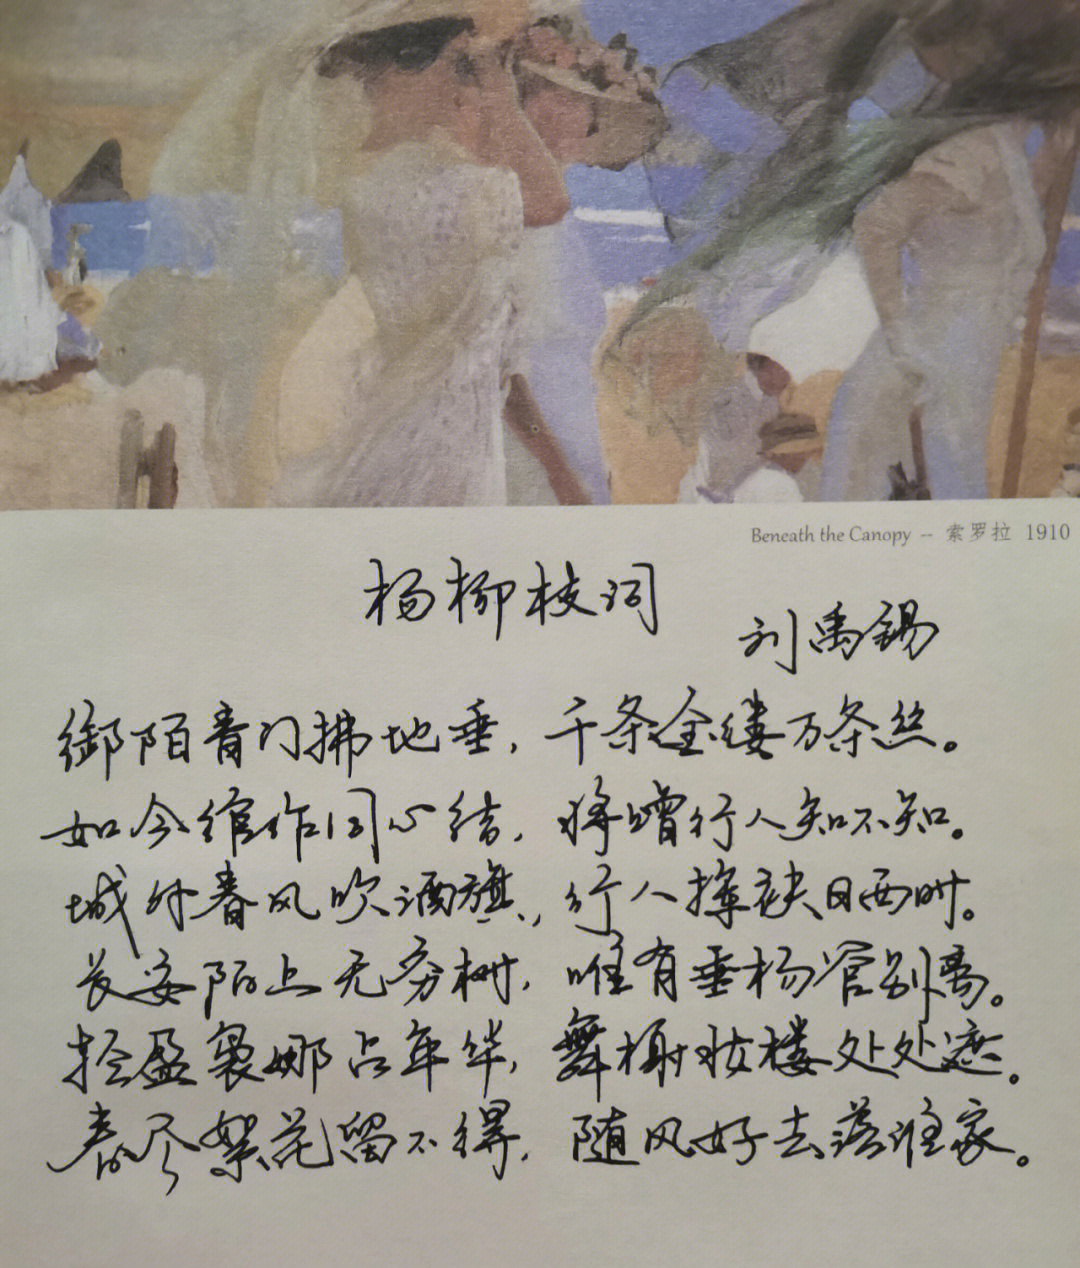 Beneath the Canopy -- 索罗拉 1910
杨柳枝词
刘禹锡
御陌青门拂地垂,千条金缕万条丝。
如今绾作同心结,将赠行人知不知。
城外春风吹酒旗,行人挥袂日西时。
长安陌上无穷树,唯有垂杨管别离。
轻盈袅娜占年华,舞榭妆楼处处遮。
春尽絮花留不得,随风好去落谁家。